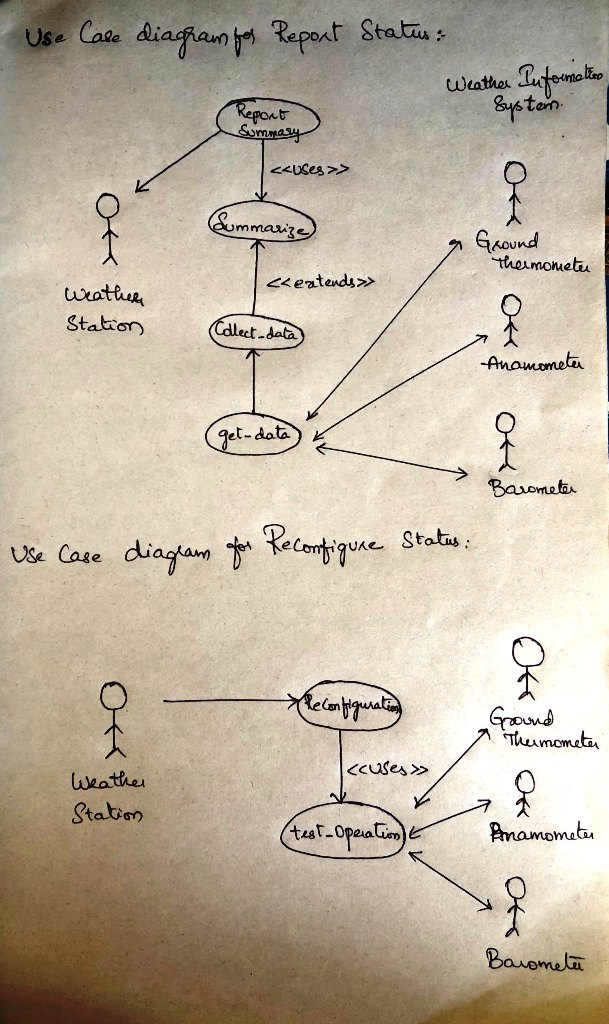 Use Case diagram for Report Status:
Weather Information
System.
Report
Summary
<<uses>>
Summarize
Ground
Thermometer
<<extends>>
Weather
Station
Collect_data
Anamometer
get-data
Barometer
Use Case diagram for Reconfigure Status:
Reconfiguration
Ground
Thermometer
<<uses>>
Weather
Station
test-Operation
Anamometer
Barometer